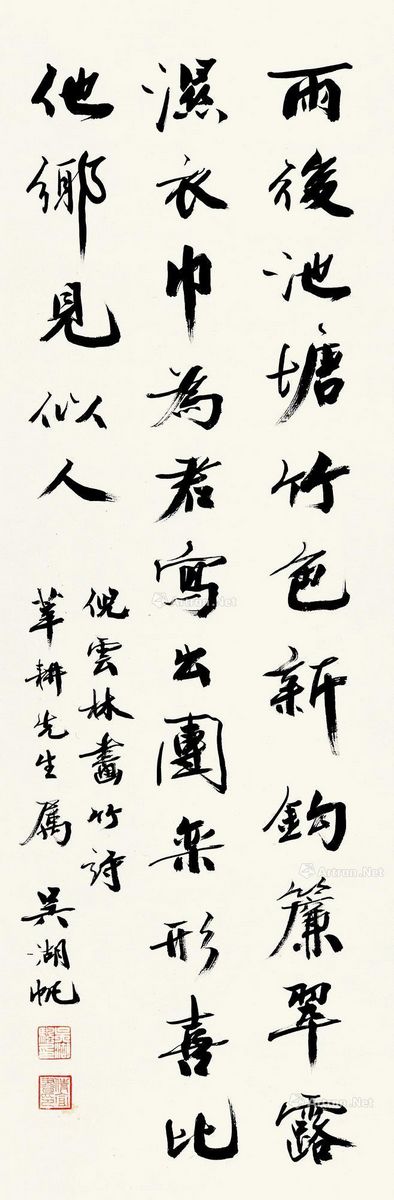 雨後池塘竹色新鈎簾翠露
濕衣巾為君寫出團欒形喜比
他鄉見似人
倪雲林畫竹詩
莘耕先生属 吴湖帆
Artron.Net
Artron.Net
Artron.Net